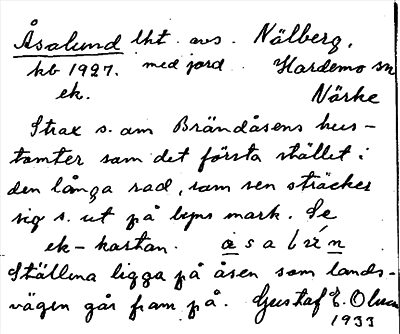 Åsalund lht. avs. Nälberg,
kb 1927. med jord. Hardemo sn
ek. Närke
Strax s. om Brändåsens hus-
tomter som det första stället i
den långa rad, som sen sträcker
sig s. ut på byns mark. Se
ek-kartan. åsalún
Ställena ligga på åsen som lands-
vägen går fram på. Gustaf E. Olsson
1933